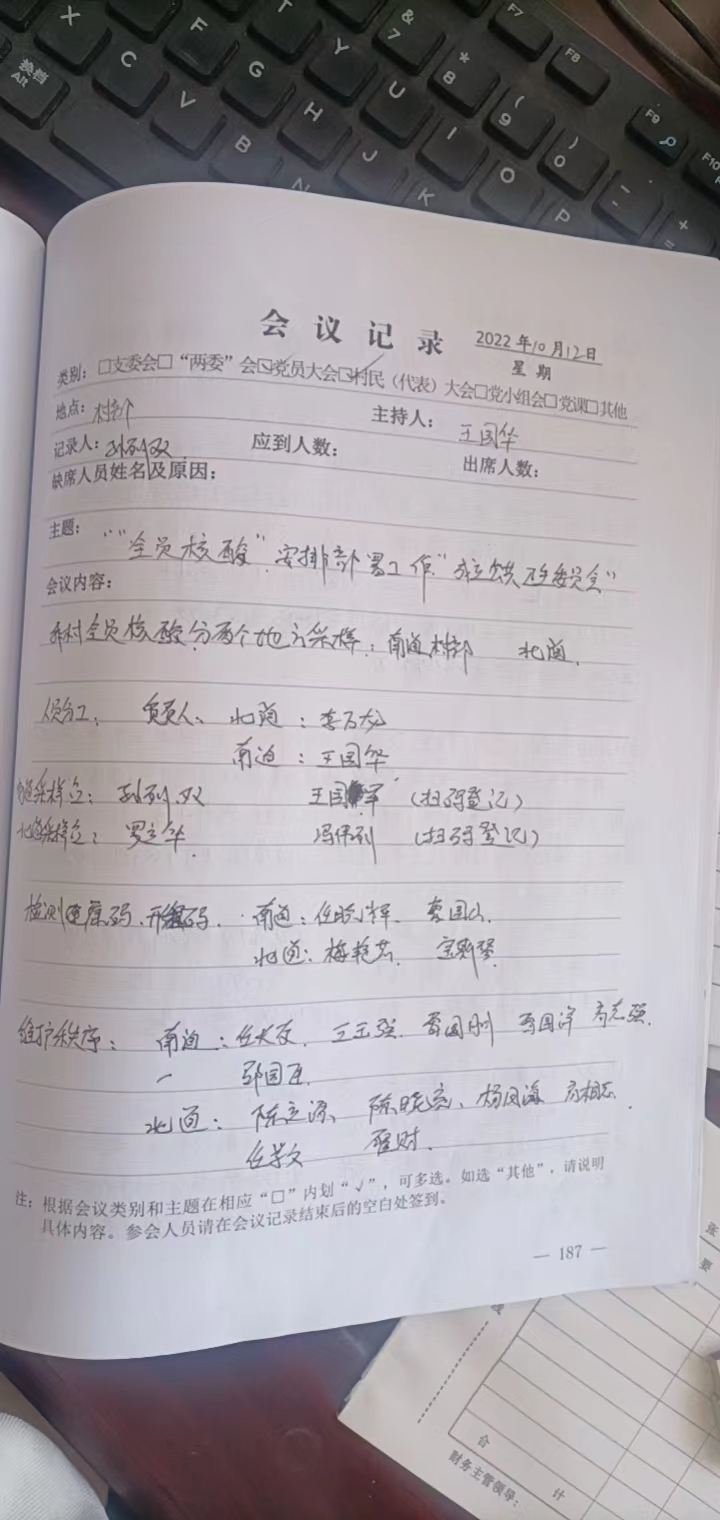 换档
Alt
X
C
V
B
N
F
G
H
J
K
T
Y
U
I
O
P
&
7
*
8
(
9
)
0
-
+
=
F7
F8
F9
F10
会议记录
2022年10月12日
星期
类别：□支委会□“两委”会☑党员大会☑村民（代表）大会□党小组会□党课□其他
地点：村部
主持人：王国华
记录人：孙列双
应到人数：
出席人数：
缺席人员姓名及原因：
主题：“全员核酸”安排部署工作
会议内容：
我村全员核酸分两个地方采样：南道村部 北道.
人员分工： 负责人、北道：李万龙
南道：王国华
南道采样点：孙列双 王国军（扫码登记）
北道采样点：罗立华 冯伟列（扫码登记）
检测健康码、行程码. 南道：任晓辉.
北道：梅艳芳.
维护秩序： 南道：任大友. 王玉强. 高志强.
北道：陈立源、陈晓亮、杨凤海
任学文
注：根据会议类别和主题在相应“□”内划“√”，可多选。如选“其他”，请说明
具体内容。参会人员请在会议记录结束后的空白处签到。
— 187 —
张
要
合
计
财务主管领导：